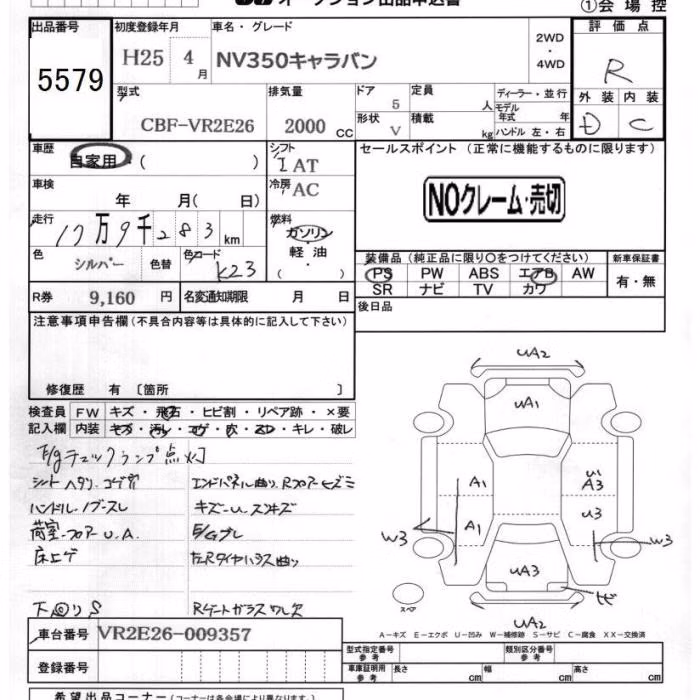 オークション出品申込書
①会場控
出品番号
5579
初度登録年月
H25 4月
車名・グレード
NV350キャラバン
2WD
・
4WD
評価点
R
外装 内装
D C
型式
CBF-VR2E26
排気量
2000 CC
ドア
5
定員
人
形状
V
積載
kg
ディーラー・並行
モデル年式 年
ハンドル 左・右
車歴
自家用・( )
シフト
I AT
車検
年 月( 日)
冷房
AC
走行
17万9千283 km
燃料
ガソリン
軽・油
・( )
色
シルバー
色替
色コード
K23
R券 9,160 円
名変通知期限 月 日
セールスポイント (正常に機能するものに限ります)
NOクレーム・売切
装備品 (純正品に限り○をつけてください)
新車保証書
PS PW ABS エアB AW
SR ナビ TV カワ
有・無
後日品
注意事項申告欄(不具合内容等は具体的に記入して下さい)
修復歴 有 〔箇所 〕
検査員 FW キズ・飛石・ヒビ割・リペア跡・×要
記入欄 内装 キズ・汚レ・コゲ・穴・スレ・キレ・破レ
E/gチェックランプ点灯
シートヘタリ、コゲ穴
ハンドル・ノブスレ
荷室・フロアーU、A
床コゲ
下回りS
エンドパネル曲り、Rフロアーヒズミ
E/Gブレ
Rゲートガラスワレ欠
UA2
UA1
A1
A1
U1
A3
U3
W3
W3
UA3
UA2
スペア
A－キズ E－エクボ U－凹み W－補修跡 S－サビ C－腐食 XX－交換済
車台番号 VR2E26-009357
登録番号
型式指定番号
参考
類別区分番号
参考
車庫証明用
参考
長さ cm
幅 cm
高さ cm
希望出品コーナー(コーナーは各会場により異なります)